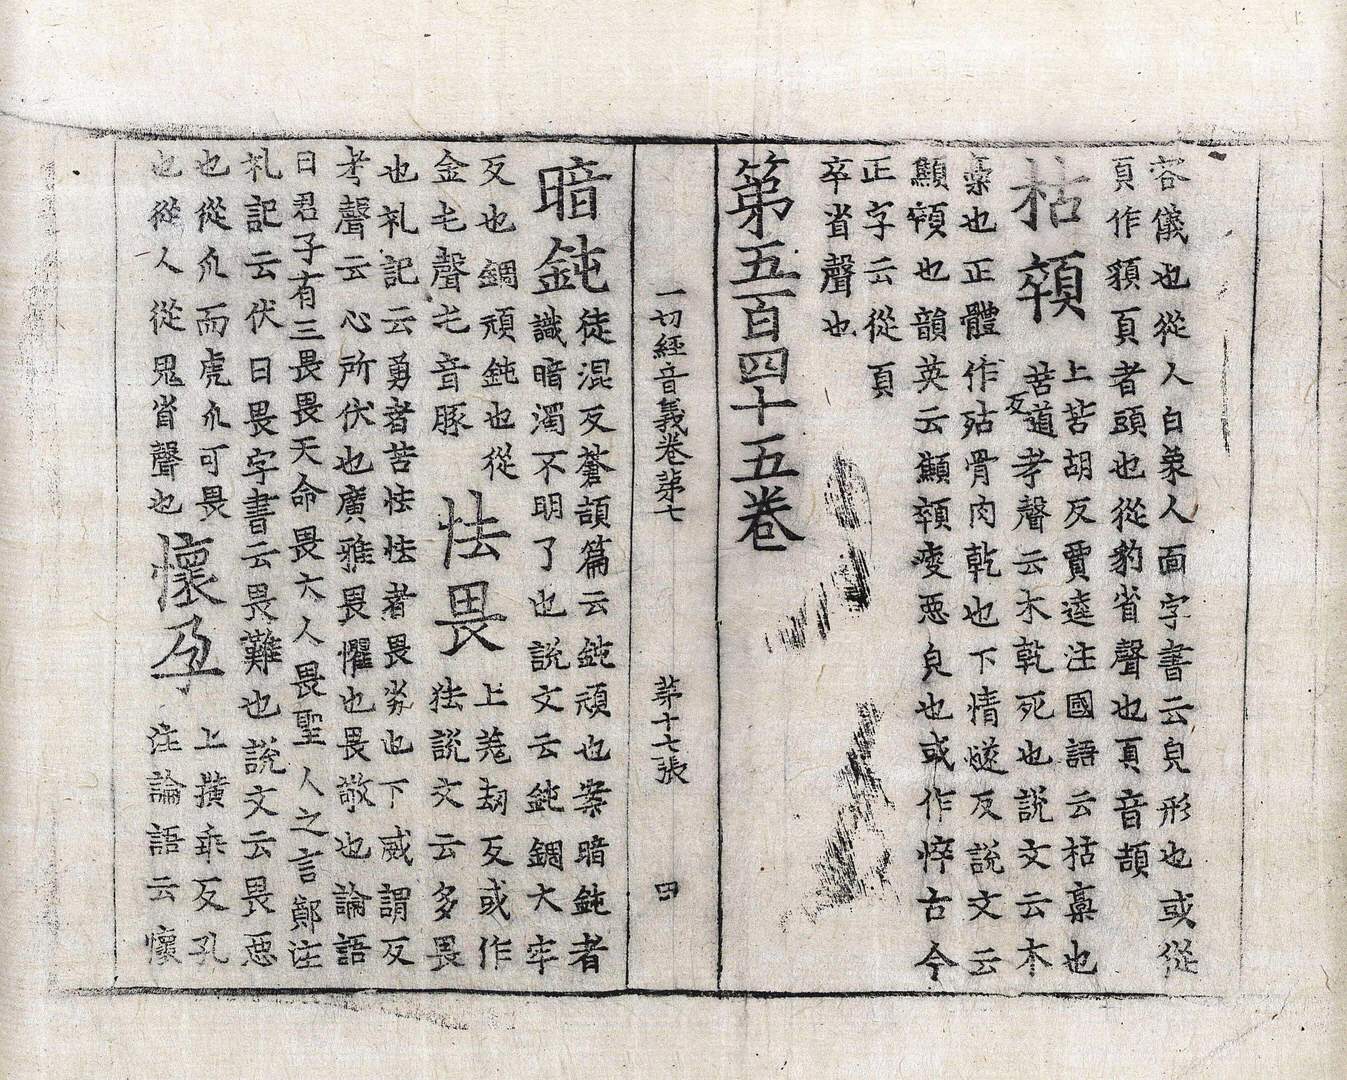 容儀也從人白象人面字書云皃形也或從
頁作䫉頁者頭也從豹省聲也頁音頡
枯顇
上苦胡反賈逵注國語云枯槀也
苦道反考聲云木乾死也説文云木
槀也正體作㱠骨肉乾也下情遂反説文云
顦顇也韻英云顦顇瘦惡皃也或作悴古今
正字云從頁
卒省聲也
第五百四十五卷
一切經音義卷第七
第十七張
四
暗鈍
徒混反蒼頡篇云鈍頑也案暗鈍者
識暗濁不明了也説文云鈍錭大牢
反也錭頑鈍也從
金屯聲屯音豚
怯畏
上羗刼反或作
㹤説文云多畏
也礼記云勇者苦怯怯者畏劣也下威謂反
考聲云心所伏也廣雅畏懼也畏敬也論語
曰君子有三畏畏天命畏大人畏聖人之言鄭注
礼記云伏曰畏字書云畏難也説文云畏惡
也從爪而虎爪可畏
也從人從鬼省聲也
懷孕
上擴乖反孔
注論語云懷